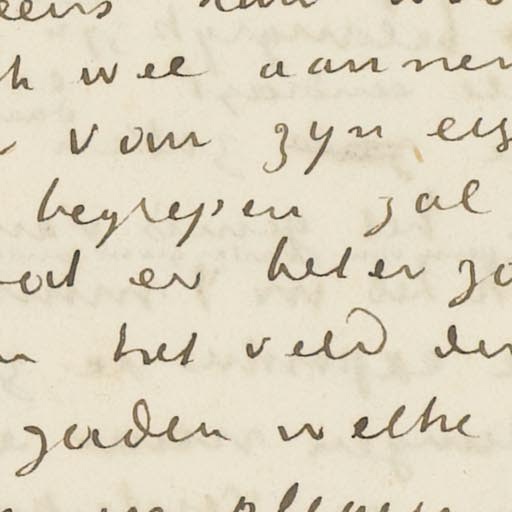 eens
wel aannem
van zyn eig
begrepen zal
er beter zo
het veld der
zaden welke